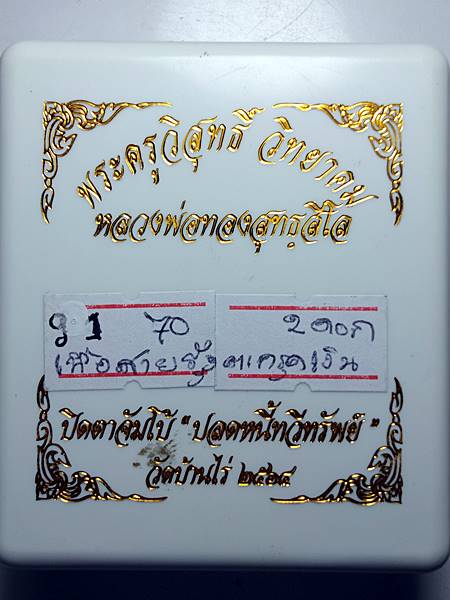 พระครูวิสุทธิ์ วิทยาคม
หลวงพ่อทองสุทฺธสีโล
91 70 2ดอก
เนื้อสายรุ้ง ตะกรุดเงิน
ปิดตาจัมโบ้ "ปลดหนี้ทวีทรัพย์"
วัดบ้านไร่ ๒๕๖๔